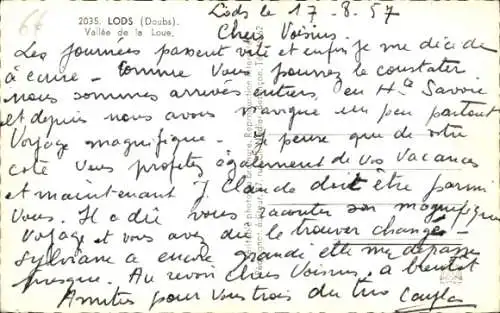 2035. LODS (Doubs).
Vallée de la Loue.
Lods le 17-8.57
Chers Voisins.
Les journées passent vite et enfin je me décide
à écrire - comme vous pouvez le constater
nous sommes arrivés entiers, en Hte Savoie
et depuis nous avons navigué un peu partout
Voyage magnifique - Je pense que de votre
coté vous profitez également de vos vacances
et maintenant J. Claude doit être parmi
vous. Il a dû vous raconter son magnifique
voyage et vous avez dû le trouver changé -
Sylviane a encore grandi elle me dépasse
presque. Au revoir Chers Voisins, à bientôt
Amitiés pour vous trois du trio